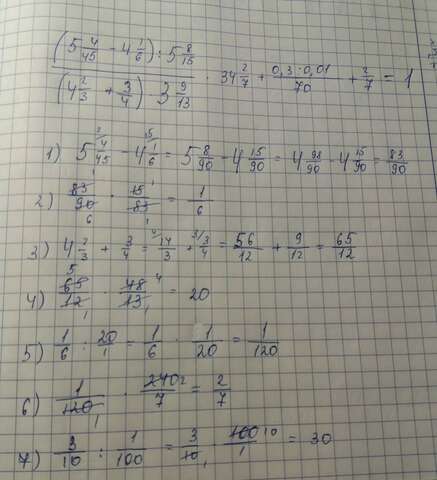 (5 4/45 - 4 1/6) : 5 8/15
(4 2/3 + 3/4) · 3 9/13
· 34 2/7 + 0,3 : 0,01 / 70 + 2/7 = 1
1) 5 4/45 - 4 1/6 = 5 8/90 - 4 15/90 = 4 98/90 - 4 15/90 = 83/90
2) 83/90 · 15/83 = 1/6
3) 4 2/3 + 3/4 = 14/3 + 3/4 = 56/12 + 9/12 = 65/12
4) 65/12 · 48/13 = 20
5) 1/6 : 20/1 = 1/6 · 1/20 = 1/120
6) 1/120 · 240/7 = 2/7
7) 3/10 : 1/100 = 3/10 · 100/1 = 30